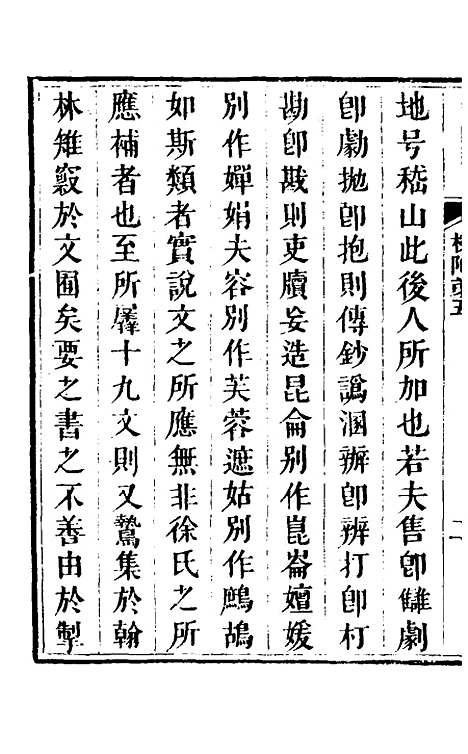 地号嵇山此後人所加也若夫售卽讎劇
卽勮抛卽抱則傳鈔譌溷辦卽辨打卽朾
勘卽戡則吏牘妄造昆侖別作崑崙嬗媛
別作嬋娟夫容別作芙蓉遮姑別作鷓鴣
如斯類者實說文之所應無非徐氏之所
應補者也至所羼十九文則又鷙集於翰
林雉竄於文囿矣要之書之不善由於掣